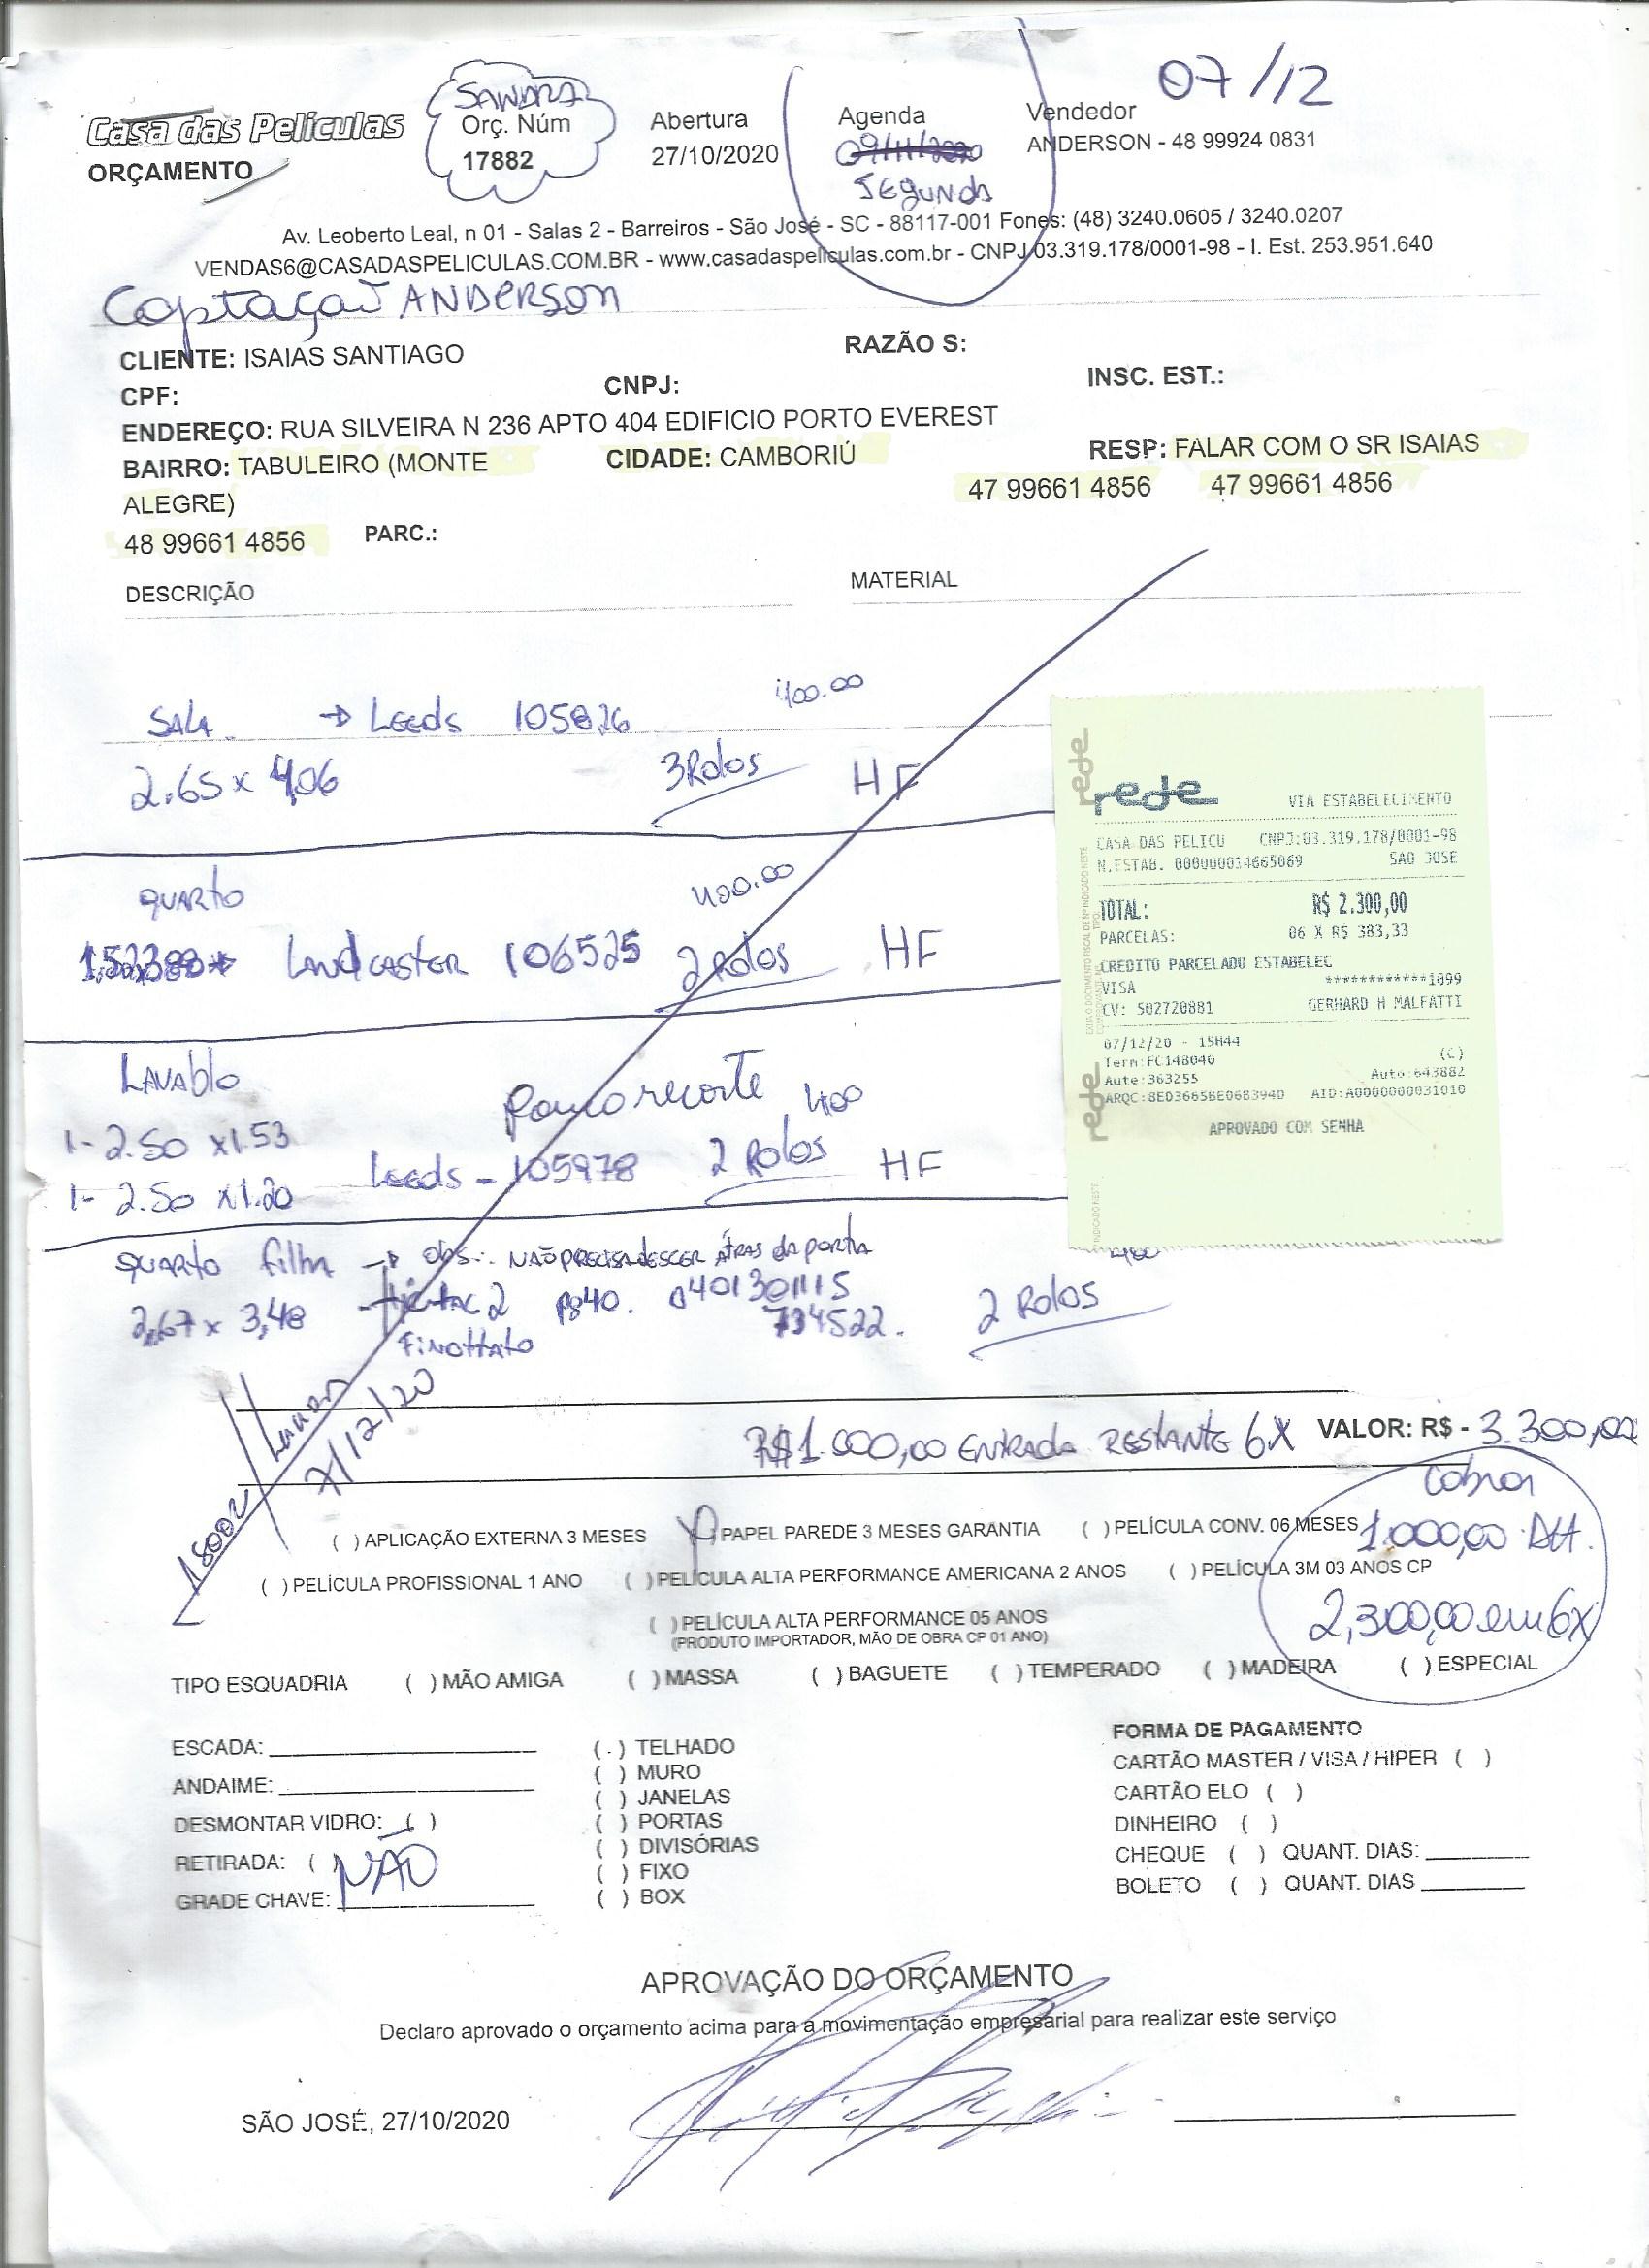 07/12
SANDRA
Casa das Películas
ORÇAMENTO
Orç. Núm
17882
Abertura
27/10/2020
Agenda
09/11/2020
Segunda
Vendedor
ANDERSON - 48 99924 0831
Av. Leoberto Leal, n 01 - Salas 2 - Barreiros - São José - SC - 88117-001 Fones: (48) 3240.0605 / 3240.0207
VENDAS6@CASADASPELICULAS.COM.BR - www.casadaspeliculas.com.br - CNPJ 03.319.178/0001-98 - I. Est. 253.951.640
Captação ANDERSON
CLIENTE: ISAIAS SANTIAGO RAZÃO S:
CPF: CNPJ: INSC. EST.:
ENDEREÇO: RUA SILVEIRA N 236 APTO 404 EDIFICIO PORTO EVEREST
BAIRRO: TABULEIRO (MONTE ALEGRE) CIDADE: CAMBORIÚ RESP: FALAR COM O SR ISAIAS
47 99661 4856 47 99661 4856
48 99661 4856 PARC.:
DESCRIÇÃO MATERIAL
400.00
SALA → Leeds 105826
2.65 x 4,06 3 Rolos HF
QUARTO 400.00
Landcaster 106525 2 Rolos HF
LAVABlo
Pouco recorte 400
1- 2.50 x1.53
1- 2.50 x1.20 Leeds - 105978 2 Rolos HF
QUARTO filha → obs.: NÃO PRECISA DESCER ATRÁS da porta
2,67 x 3,48 2 pg40. 0401301115
734522. 2 Rolos
Finottato
7/12/20
R$1.000,00 ENTRADA RESTANTE 6X VALOR: R$ - 3.300,00
cobrar
1.000,00
2,300,00 em 6x
( ) APLICAÇÃO EXTERNA 3 MESES ( ) PAPEL PAREDE 3 MESES GARANTIA ( ) PELÍCULA CONV. 06 MESES
( ) PELÍCULA PROFISSIONAL 1 ANO ( ) PELÍCULA ALTA PERFORMANCE AMERICANA 2 ANOS ( ) PELÍCULA 3M 03 ANOS CP
( ) PELÍCULA ALTA PERFORMANCE 05 ANOS
(PRODUTO IMPORTADOR, MÃO DE OBRA CP 01 ANO)
TIPO ESQUADRIA ( ) MÃO AMIGA ( ) MASSA ( ) BAGUETE ( ) TEMPERADO ( ) MADEIRA ( ) ESPECIAL
ESCADA:
ANDAIME:
DESMONTAR VIDRO: ( )
RETIRADA: ( ) NÃO
GRADE CHAVE:
( ) TELHADO
( ) MURO
( ) JANELAS
( ) PORTAS
( ) DIVISÓRIAS
( ) FIXO
( ) BOX
FORMA DE PAGAMENTO
CARTÃO MASTER / VISA / HIPER ( )
CARTÃO ELO ( )
DINHEIRO ( )
CHEQUE ( ) QUANT. DIAS:
BOLETO ( ) QUANT. DIAS
APROVAÇÃO DO ORÇAMENTO
Declaro aprovado o orçamento acima para a movimentação empresarial para realizar este serviço
SÃO JOSÉ, 27/10/2020
rede
rede VIA ESTABELECIMENTO
CASA DAS PELICU CNPJ:03.319.178/0001-98
N.ESTAB. 000000014665069 SAO JOSE
TOTAL: R$ 2.300,00
PARCELAS: 06 X R$ 383,33
CREDITO PARCELADO ESTABELEC
VISA ************1099
CV: 502720881 GERHARD H MALFATTI
07/12/20 - 15H44
Term:FC148040 (C)
Aute:363255 Auto:643882
ARQC:8ED3665BE06B394D AID:A0000000031010
APROVADO COM SENHA
rede